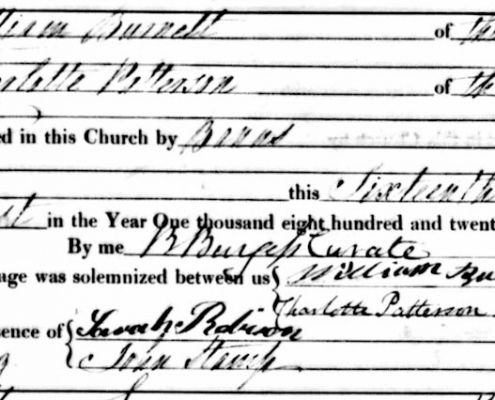 liam Burnett of the
rlotte Patterson of the
ed in this Church by Banns
this Sixteenth
st in the Year One thousand eight hundred and twent
By me B Burgess Curate
age was solemnized between us William Bu
Charlotte Patterson
sence of Sarah Robison
John